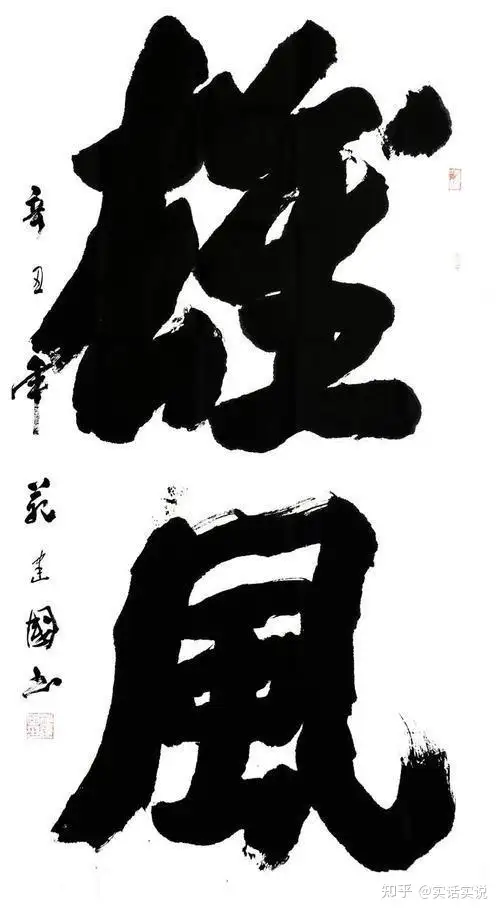 雄風
辛丑年 范建國书
知乎 @实话实说